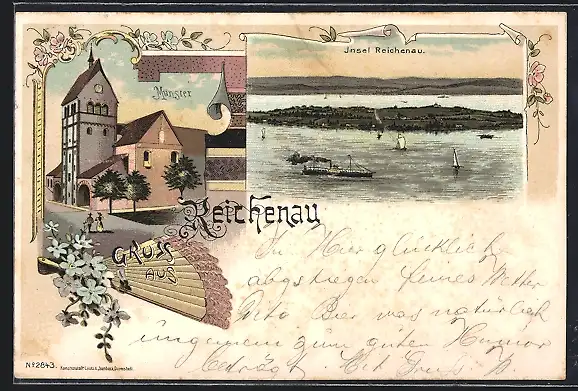 Münster
Insel Reichenau.
Reichenau
Gruss
aus
In Hier glücklich
abgstiegen feines Wetter
Dito Bier was natürlich
ungemein zum guten Humor
beiträgt. Mit Gruss
No 2843.